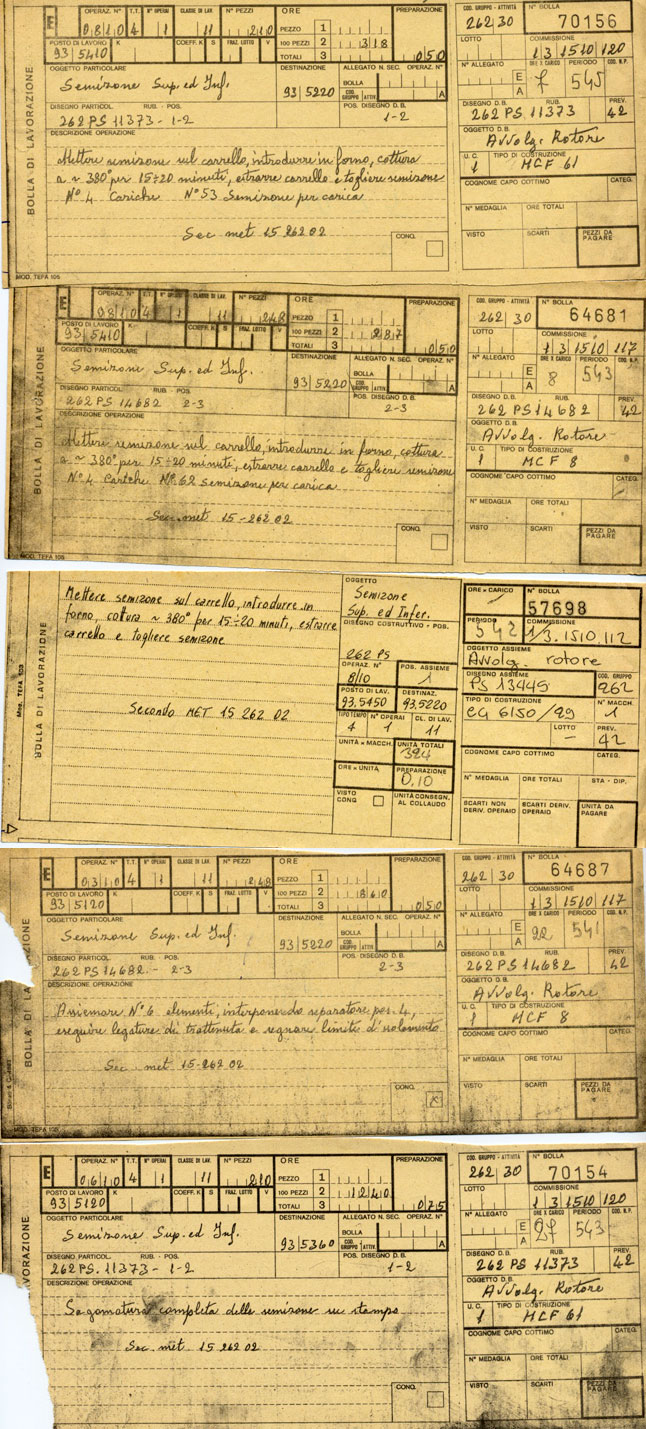 E
OPERAZ. N° T.T. N° OPERAI CLASSE DI LAV. N° PEZZI
0810 4 1 11 210
POSTO DI LAVORO K COEFF. K S FRAZ. LOTTO V
93 5410
ORE
PEZZO 1
100 PEZZI 2 318
TOTALI 3
PREPARAZIONE
050
OGGETTO PARTICOLARE
Semizone Sup. ed Inf.
DESTINAZIONE
93 5220
ALLEGATO N. SEC. OPERAZ. N°
BOLLA
COD. GRUPPO ATTIV. A
DISEGNO PARTICOL. RUB. - POS.
262 PS 11373 - 1-2
POS. DISEGNO D.B.
1-2
DESCRIZIONE OPERAZIONE
Mettere semizone sul carrello, introdurre in forno, cottura
a ~ 380° per 15÷20 minuti, estrarre carrello e togliere semizone
N° 4 Cariche N° 53 Semizone per carica
Sec met 15 262 02
CONQ.
BOLLA DI LAVORAZIONE
MOD. TEFA 105
COD. GRUPPO - ATTIVITÀ N° BOLLA
262 30 70156
LOTTO COMMISSIONE
1 3 1510 120
N° ALLEGATO ORE X CARICO PERIODO COD. N.P.
E A 7 545
DISEGNO D.B. RUB. PREV.
262 PS 11373 42
OGGETTO D.B.
Avvolg. Rotore
U. C. TIPO DI COSTRUZIONE
1 MCF 61
COGNOME CAPO COTTIMO CATEG.
N° MEDAGLIA ORE TOTALI
VISTO SCARTI PEZZI DA PAGARE
E
OPERAZ. N° T.T. N° OPERAI CLASSE DI LAV. N° PEZZI
0810 4 1 11 248
POSTO DI LAVORO K COEFF. K S FRAZ. LOTTO V
93 5410
ORE
PEZZO 1
100 PEZZI 2 287
TOTALI 3
PREPARAZIONE
050
OGGETTO PARTICOLARE
Semizone Sup. ed Inf.
DESTINAZIONE
93 5220
ALLEGATO N. SEC. OPERAZ. N°
BOLLA
COD. GRUPPO ATTIV. A
DISEGNO PARTICOL. RUB. - POS.
262 PS 14682 - 2-3
POS. DISEGNO D.B.
2-3
DESCRIZIONE OPERAZIONE
Mettere semizone sul carrello, introdurre in forno, cottura
a ~ 380° per 15÷20 minuti, estrarre carrello e togliere semizone
N° 4 Cariche N° 62 semizone per carica
Sec. met 15-262 02
CONQ.
BOLLA DI LAVORAZIONE
MOD. TEFA 105
COD. GRUPPO - ATTIVITÀ N° BOLLA
262 30 64681
LOTTO COMMISSIONE
1 3 1510 117
N° ALLEGATO ORE X CARICO PERIODO COD. N.P.
E A 8 543
DISEGNO D.B. RUB. PREV.
262 PS 14682 42
OGGETTO D.B.
Avvolg. Rotore
U. C. TIPO DI COSTRUZIONE
1 MCF 8
COGNOME CAPO COTTIMO CATEG.
N° MEDAGLIA ORE TOTALI
VISTO SCARTI PEZZI DA PAGARE
Mettere semizone sul carrello, introdurre in
forno, cottura ~ 380° per 15÷20 minuti, estrarre
carrello e togliere semizone
Secondo MET 15 262 02
BOLLA DI LAVORAZIONE
Mod. TEFA 103
OGGETTO
Semizone
Sup. ed Infer.
DISEGNO COSTRUTTIVO + POS.
262 PS
OPERAZ. N° POS. ASSIEME
810 1
POSTO DI LAV. DESTINAZ.
93,5450 93,5220
TIPO TEMPO N° OPERAI CL. DI LAV.
4 1 11
UNITÀ x MACCH. UNITÀ TOTALI
384
ORE x UNITÀ PREPARAZIONE
0,10
VISTO CONQ UNITÀ CONSEGN. AL COLLAUDO
ORE x CARICO N° BOLLA
57698
PERIODO COMMISSIONE
542 1/3.1510.112
OGGETTO ASSIEME
Avvolg. rotore
DISEGNO ASSIEME COD. GRUPPO
PS 13445 262
TIPO DI COSTRUZIONE N° MACCH.
CG 6150/99 1
LOTTO PREV.
— 42
COGNOME CAPO COTTIMO CATEG.
N° MEDAGLIA ORE TOTALI STA - DIP.
SCARTI NON DERIV. OPERAIO SCARTI DERIV. OPERAIO UNITÀ DA PAGARE
E
OPERAZ. N° T.T. N° OPERAI CLASSE DI LAV. N° PEZZI
0310 4 1 11 248
POSTO DI LAVORO K COEFF. K S FRAZ. LOTTO V
93 5120
ORE
PEZZO 1
100 PEZZI 2 860
TOTALI 3
PREPARAZIONE
050
OGGETTO PARTICOLARE
Semizone Sup. ed Inf.
DESTINAZIONE
93 5220
ALLEGATO N. SEC. OPERAZ. N°
BOLLA
COD. GRUPPO ATTIV. A
DISEGNO PARTICOL. RUB. - POS.
262 PS 14682 - 2-3
POS. DISEGNO D.B.
2-3
DESCRIZIONE OPERAZIONE
Assiemare N° 6 elementi, interponendo separatore pos. 4,
eseguire legature di trattenuta e segnare limite d'isolamento
Sec met 15-262 02
CONQ.
COD. GRUPPO - ATTIVITÀ N° BOLLA
262 30 64687
LOTTO COMMISSIONE
1 3 1510 117
N° ALLEGATO ORE X CARICO PERIODO COD. N.P.
E A 22 541
DISEGNO D.B. RUB. PREV.
262 PS 14682 42
OGGETTO D.B.
Avvolg. Rotore
U. C. TIPO DI COSTRUZIONE
1 MCF 8
COGNOME CAPO COTTIMO CATEG.
N° MEDAGLIA ORE TOTALI
VISTO SCARTI PEZZI DA PAGARE
E
OPERAZ. N° T.T. N° OPERAI CLASSE DI LAV. N° PEZZI
0610 4 1 11 210
POSTO DI LAVORO K COEFF. K S FRAZ. LOTTO V
93 5120
ORE
PEZZO 1
100 PEZZI 2 1240
TOTALI 3
PREPARAZIONE
075
OGGETTO PARTICOLARE
Semizone Sup. ed Inf.
DESTINAZIONE
93 5360
ALLEGATO N. SEC. OPERAZ. N°
BOLLA
COD. GRUPPO ATTIV. A
DISEGNO PARTICOL. RUB. - POS.
262 PS. 11373 - 1-2
POS. DISEGNO D.B.
1-2
DESCRIZIONE OPERAZIONE
Sagomatura completa delle semizone su stampo
Sec. met 15 262 02
CONQ.
COD. GRUPPO - ATTIVITÀ N° BOLLA
262 30 70154
LOTTO COMMISSIONE
1 3 1510 120
N° ALLEGATO ORE X CARICO PERIODO COD. N.P.
E A 27 543
DISEGNO D.B. RUB. PREV.
262 PS 11373 42
OGGETTO D.B.
Avvolg. Rotore
U. C. TIPO DI COSTRUZIONE
1 MCF 61
COGNOME CAPO COTTIMO CATEG.
N° MEDAGLIA ORE TOTALI
VISTO SCARTI PEZZI DA PAGARE